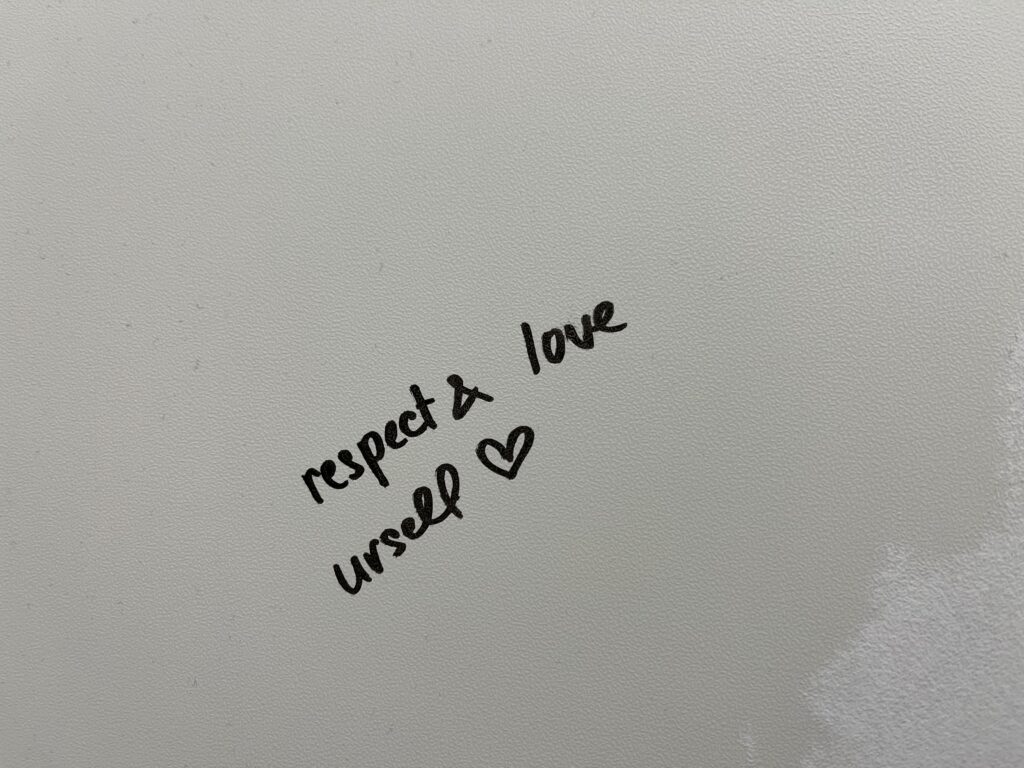 respect & love
urself ♡